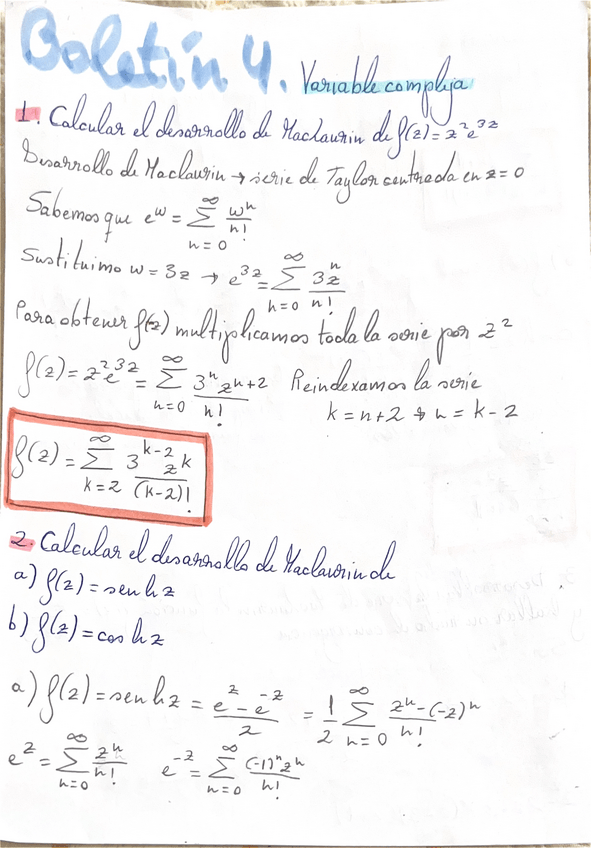 Boletín 4. Variable compleja
1. Calcular el desarrollo de Maclaurin de f(z) = z²e^{3z}
Desarrollo de Maclaurin → serie de Taylor centrada en z = 0
Sabemos que e^w = ∑_{n=0}^{∞} w^n / n!
Sustituimo w = 3z → e^{3z} = ∑_{n=0}^{∞} 3z^n / n!
Para obtener f(z) multiplicamos toda la serie por z²
f(z) = z²e^{3z} = ∑_{n=0}^{∞} 3^n z^{n+2} / n! Reindexamos la serie
k = n+2 → n = k-2
f(z) = ∑_{k=2}^{∞} 3^{k-2} z^k / (k-2)!
2. Calcular el desarrollo de Maclaurin de
a) f(z) = senh z
b) f(z) = cosh z
a) f(z) = senh z = (e^z - e^{-z}) / 2 = 1/2 ∑_{n=0}^{∞} (z^n - (-z)^n) / n!
e^z = ∑_{n=0}^{∞} z^n / n! e^{-z} = ∑_{n=0}^{∞} (-1)^n z^n / n!